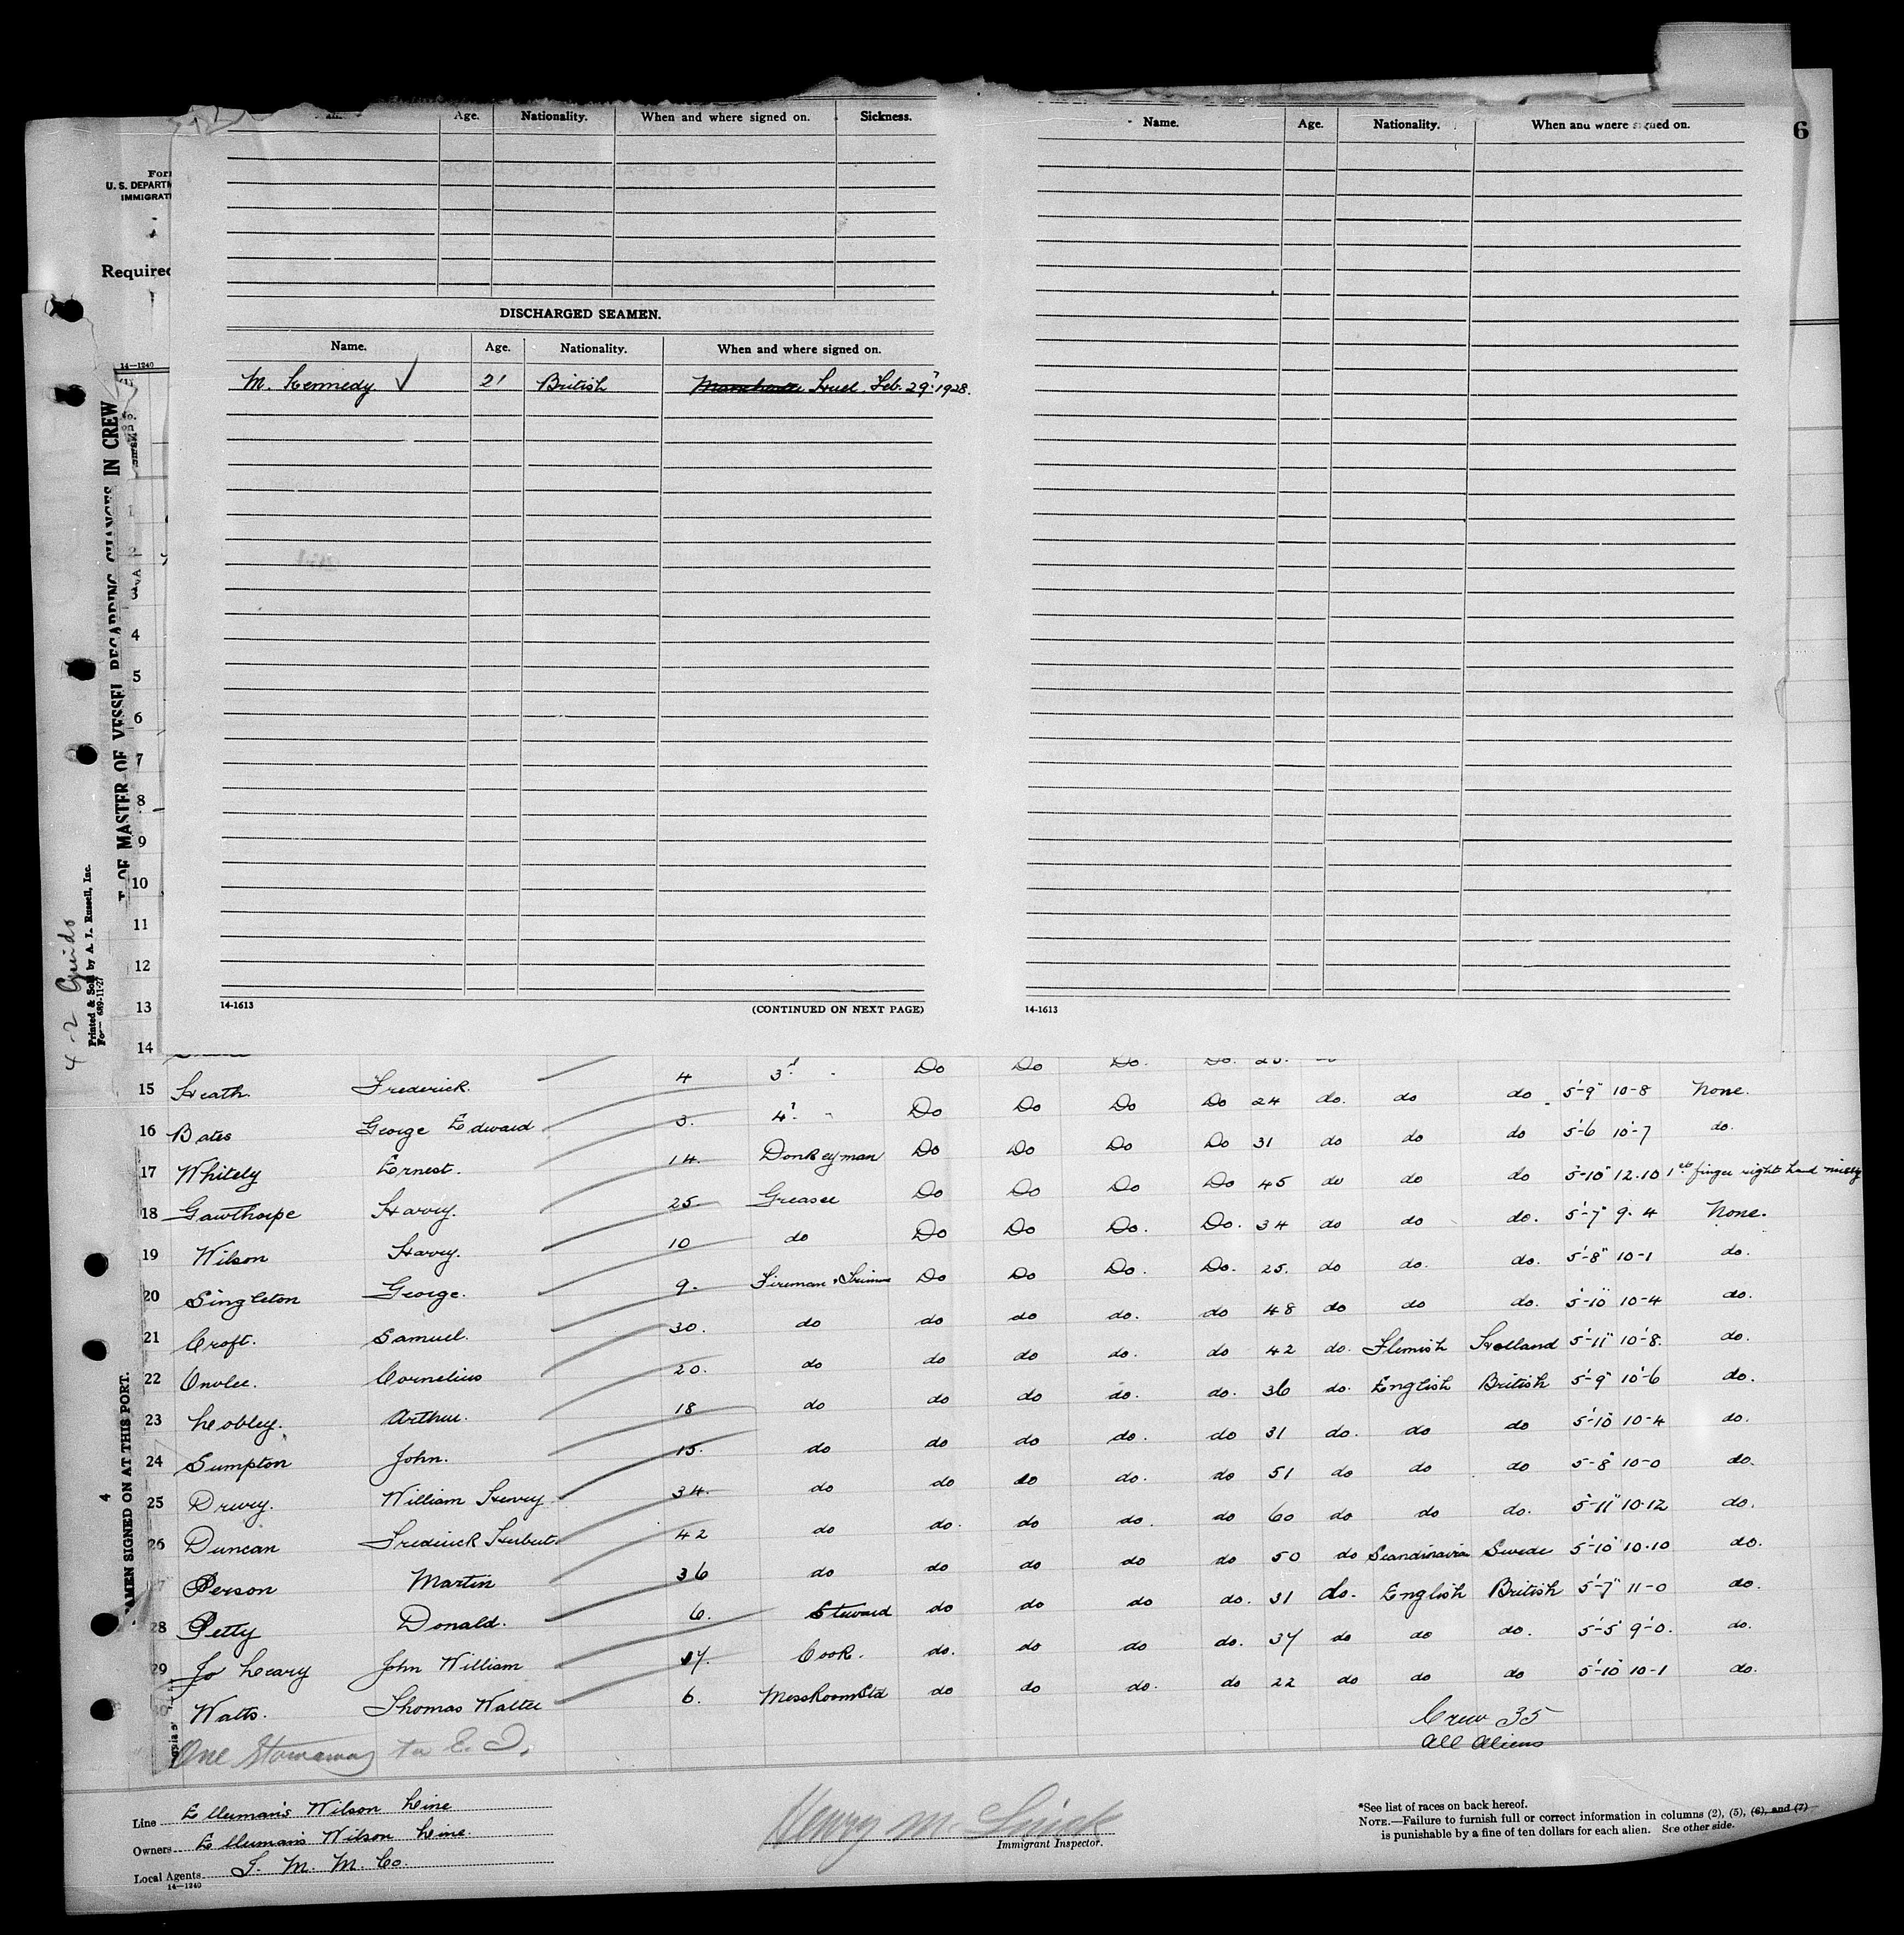 6
Name. Age. Nationality. When and where signed on. Sickness.
Name. Age. Nationality. When and where signed on.
U. S. DEPARTM
IMMIGRAT
Required
DISCHARGED SEAMEN.
Name. Age. Nationality. When and where signed on.
M. Kennedy ✓ 21 British Hull. Feb. 29" 1928.
14—1240
OF MASTER OF VESSEL REGARDING CHANGES IN CREW
Printed & Sold by A. L. Russell, Inc.
4-2 Guido
1
2
3
4
5
6
7
8
9
10
11
12
13
14
14-1613 (CONTINUED ON NEXT PAGE) 14-1613
15 Heath. Frederick. 4 3rd Do Do Do Do 24 do. do do 5'-9" 10-8 None.
16 Bates George Edward 3. 4th Do Do Do Do 31 do do do 5'-6 10-7 do.
17 Whitely Ernest. 14. Donkeyman Do Do Do Do 45 do do do 5'-10" 12.10 1st finger right hand missg
18 Gawthorpe Harry. 25 Greaser Do Do Do. Do. 34 do do do. 5'-7" 9.4 None.
19 Wilson Harry. 10 do Do Do Do. Do. 25. do do. do. 5'-8" 10-1 do.
20 Singleton George. 9. Fireman & Trimmer Do Do do. do 48 do do do. 5'-10" 10-4 do.
21 Croft. Samuel. 30. do do do do. do 42 do. Flemish Holland 5'-11" 10-8. do.
22 Onvlee. Cornelius 20. do do do do. do. 36 do. English British 5'-9" 10-6 do.
23 Lobley. Arthur. 18 do do do do. do 31 do. do do 5'-10" 10-4 do.
24 Sumpton John. 15. do do do do. do 51 do do do 5'-8" 10-0 do.
25 Drury. William Henry 34. do do do do. do 60 do do do. 5'-11" 10.12 do.
26 Duncan Frederick Herbert 42 do do. do do do 50 do Scandinavia Swede 5'-10" 10.10 do.
27 Person Martin 36 do do do do do. 31 do. English British 5'-7" 11-0 do.
28 Petty Donald. 6. Steward do do do do. 37 do do do. 5'-5 9-0. do.
29 John William 17. Cook. do. do do. do 22 do do do 5'-10" 10-1 do.
30 Watts. Thomas Walter 6. MessRoomStd do do
Crew 35
All Aliens
One Stowaway to E. I.
4
SEAMEN SIGNED ON AT THIS PORT.
Line Ellerman's Wilson Line
Owners Ellerman's Wilson Line.
Local Agents I. M. M. Co.
14—1240
Henry M.
Immigrant Inspector.
*See list of races on back hereof.
NOTE.—Failure to furnish full or correct information in columns (2), (5), (6), and (7)
is punishable by a fine of ten dollars for each alien. See other side.